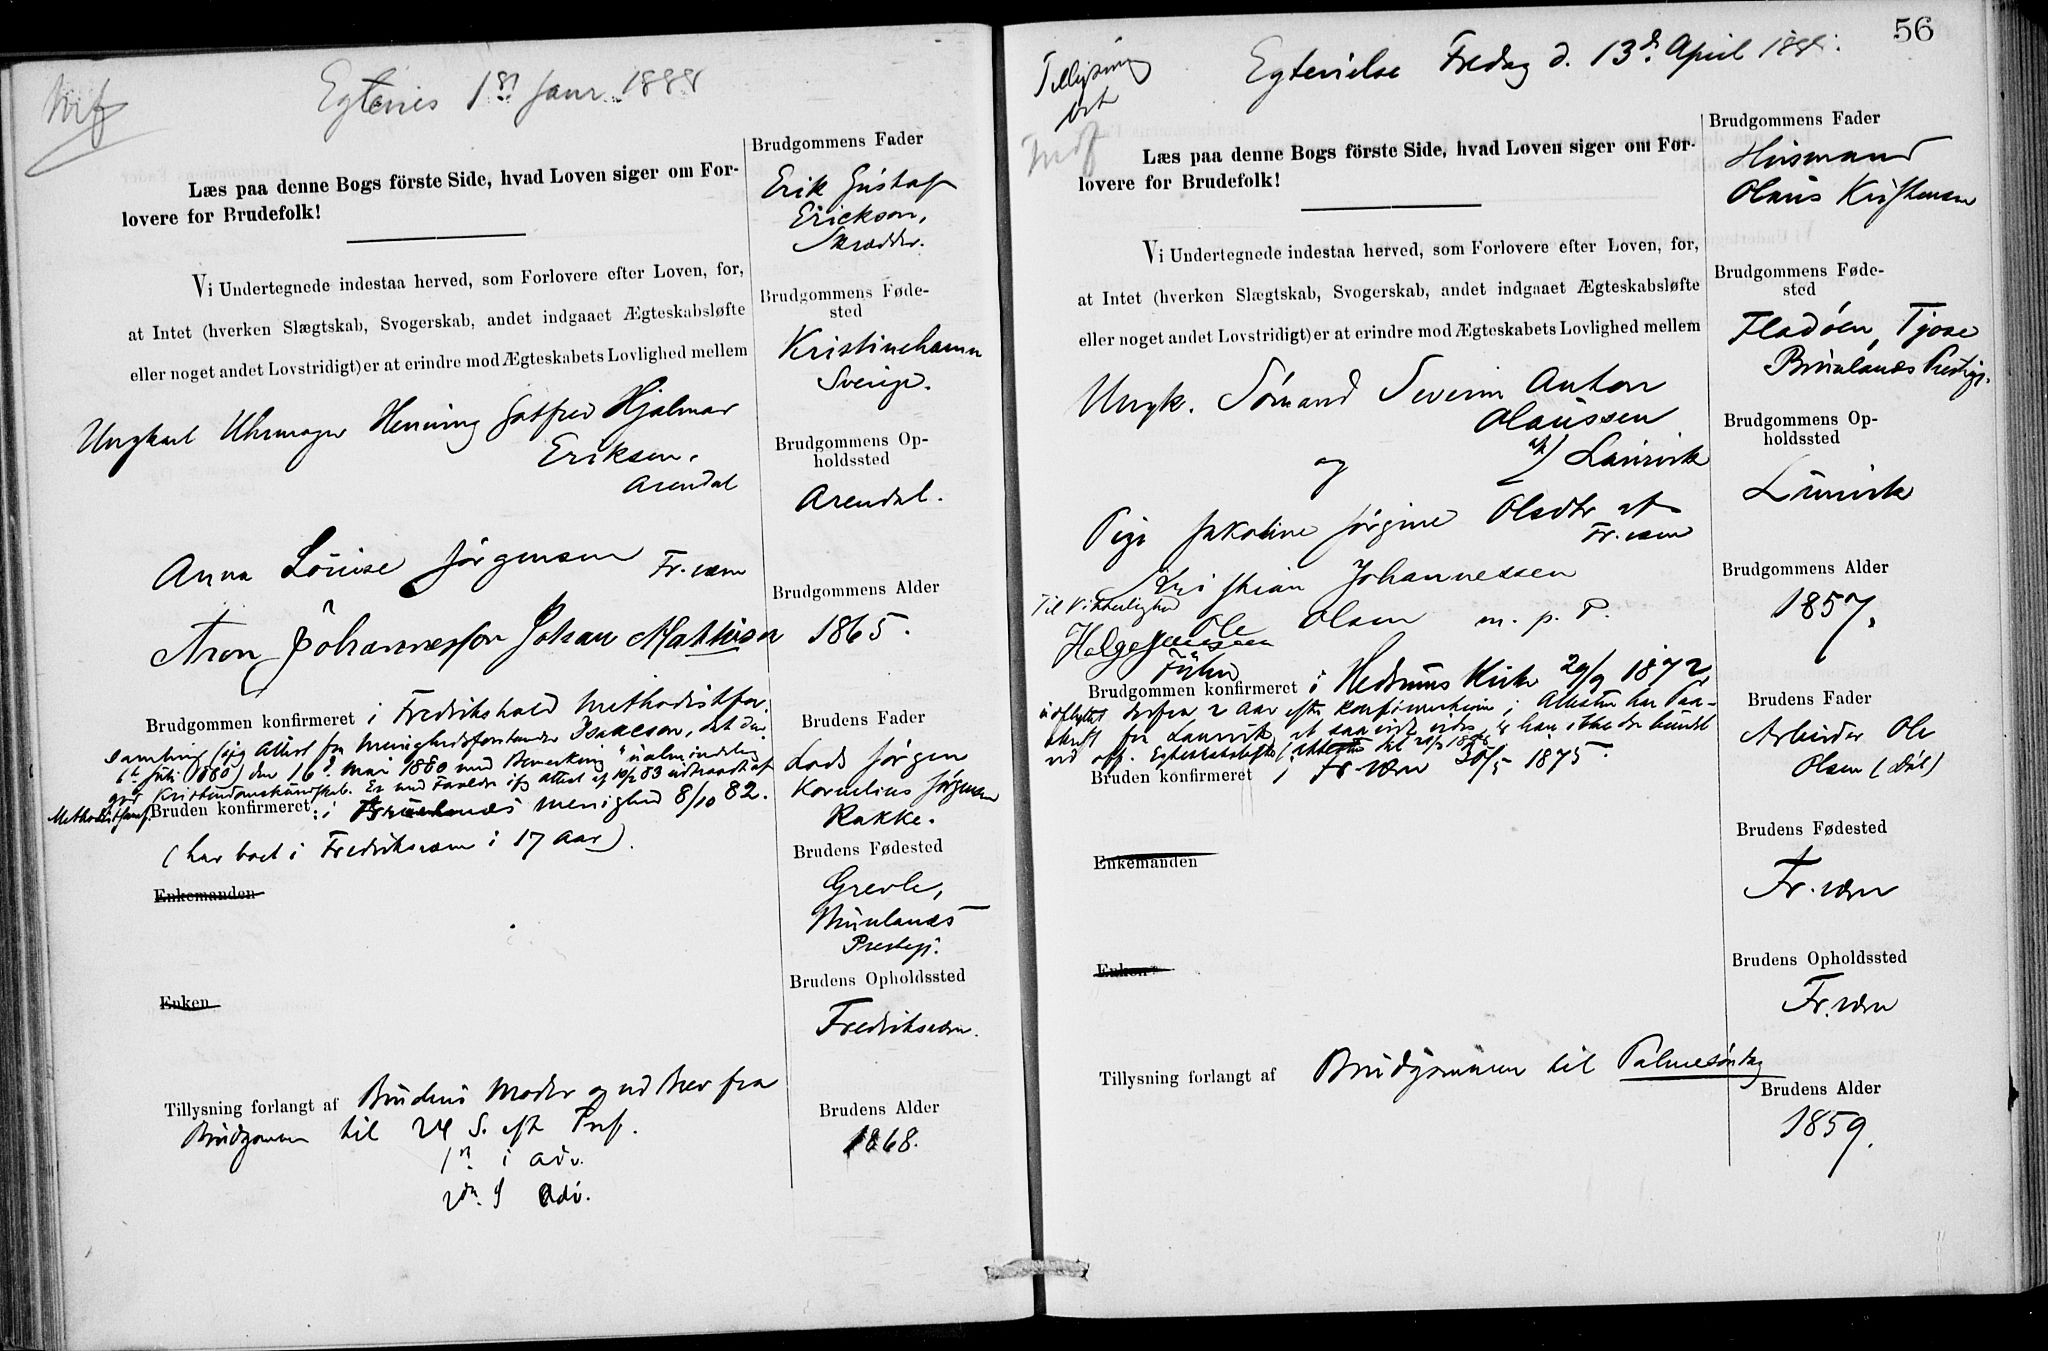 Egtevies 1st Janr 1888
Læs paa denne Bogs förste Side, hvad Loven siger om For-
lovere for Brudefolk!
Vi Undertegnede indestaa herved, som Forlovere efter Loven, for,
at Intet (hverken Slægtskab, Svogerskab, andet indgaaet Ægteskabsløfte
eller noget andet Lovstridigt) er at erindre mod Ægteskabets Lovlighed mellem
Ungkarl Uhrmager Henning Gotfred Hjalmar
Eriksen,
Arendal
Anna Louise Jørgensen Fr.værn
Aron Johannesson Johan Mathisen
Brudgommen konfirmeret i Fredrikshald Methodistfor-
samling (ifg Attest fra Menighedsforstander Isaksson, dat. den
Juli 1880) den 16 Mai 1880 med Bemerkning "ualmindelig
god Kristendomskundskab. Er med Forældre ifg attest af 10/2 83 udtraadt af
Methodistsamf.
Bruden konfirmeret: i Brunlanæs menighed 8/10 82.
(har boet i Fredriksværn i 17 Aar).
Enkemanden
Enken
Tillysning forlangt af Brudens Moder og ved Brev fra
Brudgommen til 24 S. eft Tref.
1st i Adv.
2den S Adv.
Brudgommens Fader
Erik Gustaf
Erickson,
Skrædder.
Brudgommens Føde-
sted
Kristinehamn
Sverige.
Brudgommens Op-
holdssted
Arendal.
Brudgommens Alder
1865.
Brudens Fader
Lods Jørgen
Kornelius Jørgensen
Rakke.
Brudens Fødested
Grevle,
Brunlanæs
Prestegj.
Brudens Opholdssted
Fredriksværn.
Brudens Alder
1868.
56
Tillysning
Egtevielse Fredag d. 13de April 1888.
Læs paa denne Bogs förste Side, hvad Loven siger om For-
lovere for Brudefolk!
Vi Undertegnede indestaa herved, som Forlovere efter Loven, for,
at Intet (hverken Slægtskab, Svogerskab, andet indgaaet Ægteskabsløfte
eller noget andet Lovstridigt) er at erindre mod Ægteskabets Lovlighed mellem
Ungk. Sömand Severin Anton
Olaussen
af Laurvik
og
Pige Jakobine Jørgine Olsdtr af
Fr.værn
Kristian Johannessen
Til Vitterlighed
Ole Olsen m. p. P.
Helge
Brudgommen konfirmeret i Hedrums Kirke 29/9 1872,
udflyttet derfra 2 Aar efter Konfirmationen; Attesten har Paa-
skrift fra Laurvik, at saavidt vides, er han ikke der bundet
ved off. Egteskabsløfte
Bruden konfirmeret i Fr.værn 30/5 1875.
Enkemanden
Enken
Tillysning forlangt af Brudgommen til Palmesöndag
Brudgommens Fader
Husmand
Olaus Kristensen
Brudgommens Føde-
sted
Fladøen, Tjose
Brunlanæs Prestegj.
Brudgommens Op-
holdssted
Laurvik
Brudgommens Alder
1857,
Brudens Fader
Arbeider Ole
Olsen (död)
Brudens Fødested
Fr.værn
Brudens Opholdssted
Fr.værn
Brudens Alder
1859.